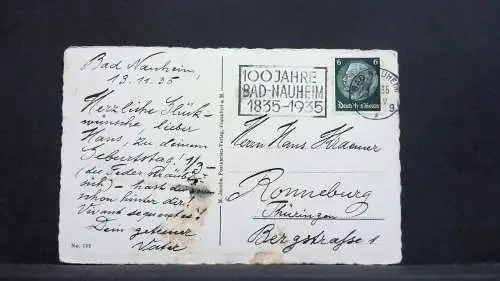 Bad Nauheim,
13.11.35
Herzliche Glück-
wünsche, lieber
Hans, zu deinem
Geburtstag! 1/3 -
(die Feder sträubt
sich) - hast du
schon hinter dir!
Vivant sequentes!
Dein getreuer
Vater
No. 102
M. Jacobs, Postkarten-Verlag, Frankfurt a. M.
100 JAHRE
BAD-NAUHEIM
1835-1935
6 6
Deutsches Reich
BAD-NAUHEIM
Herrn Hans Kraemer
Ronneburg
Thüringen
Bergstrasse 1